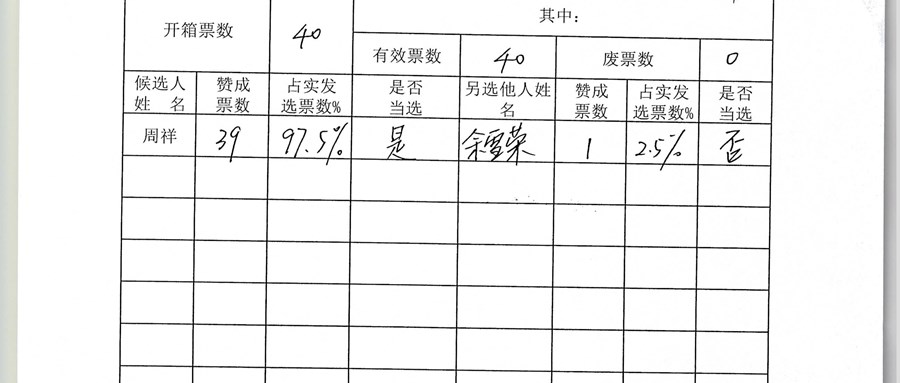 其中:
开箱票数 40
有效票数 40 废票数 0
候选人姓名 赞成票数 占实发选票数% 是否当选 另选他人姓名 赞成票数 占实发选票数% 是否当选
周祥 39 97.5% 是 余雪荣 1 2.5% 否